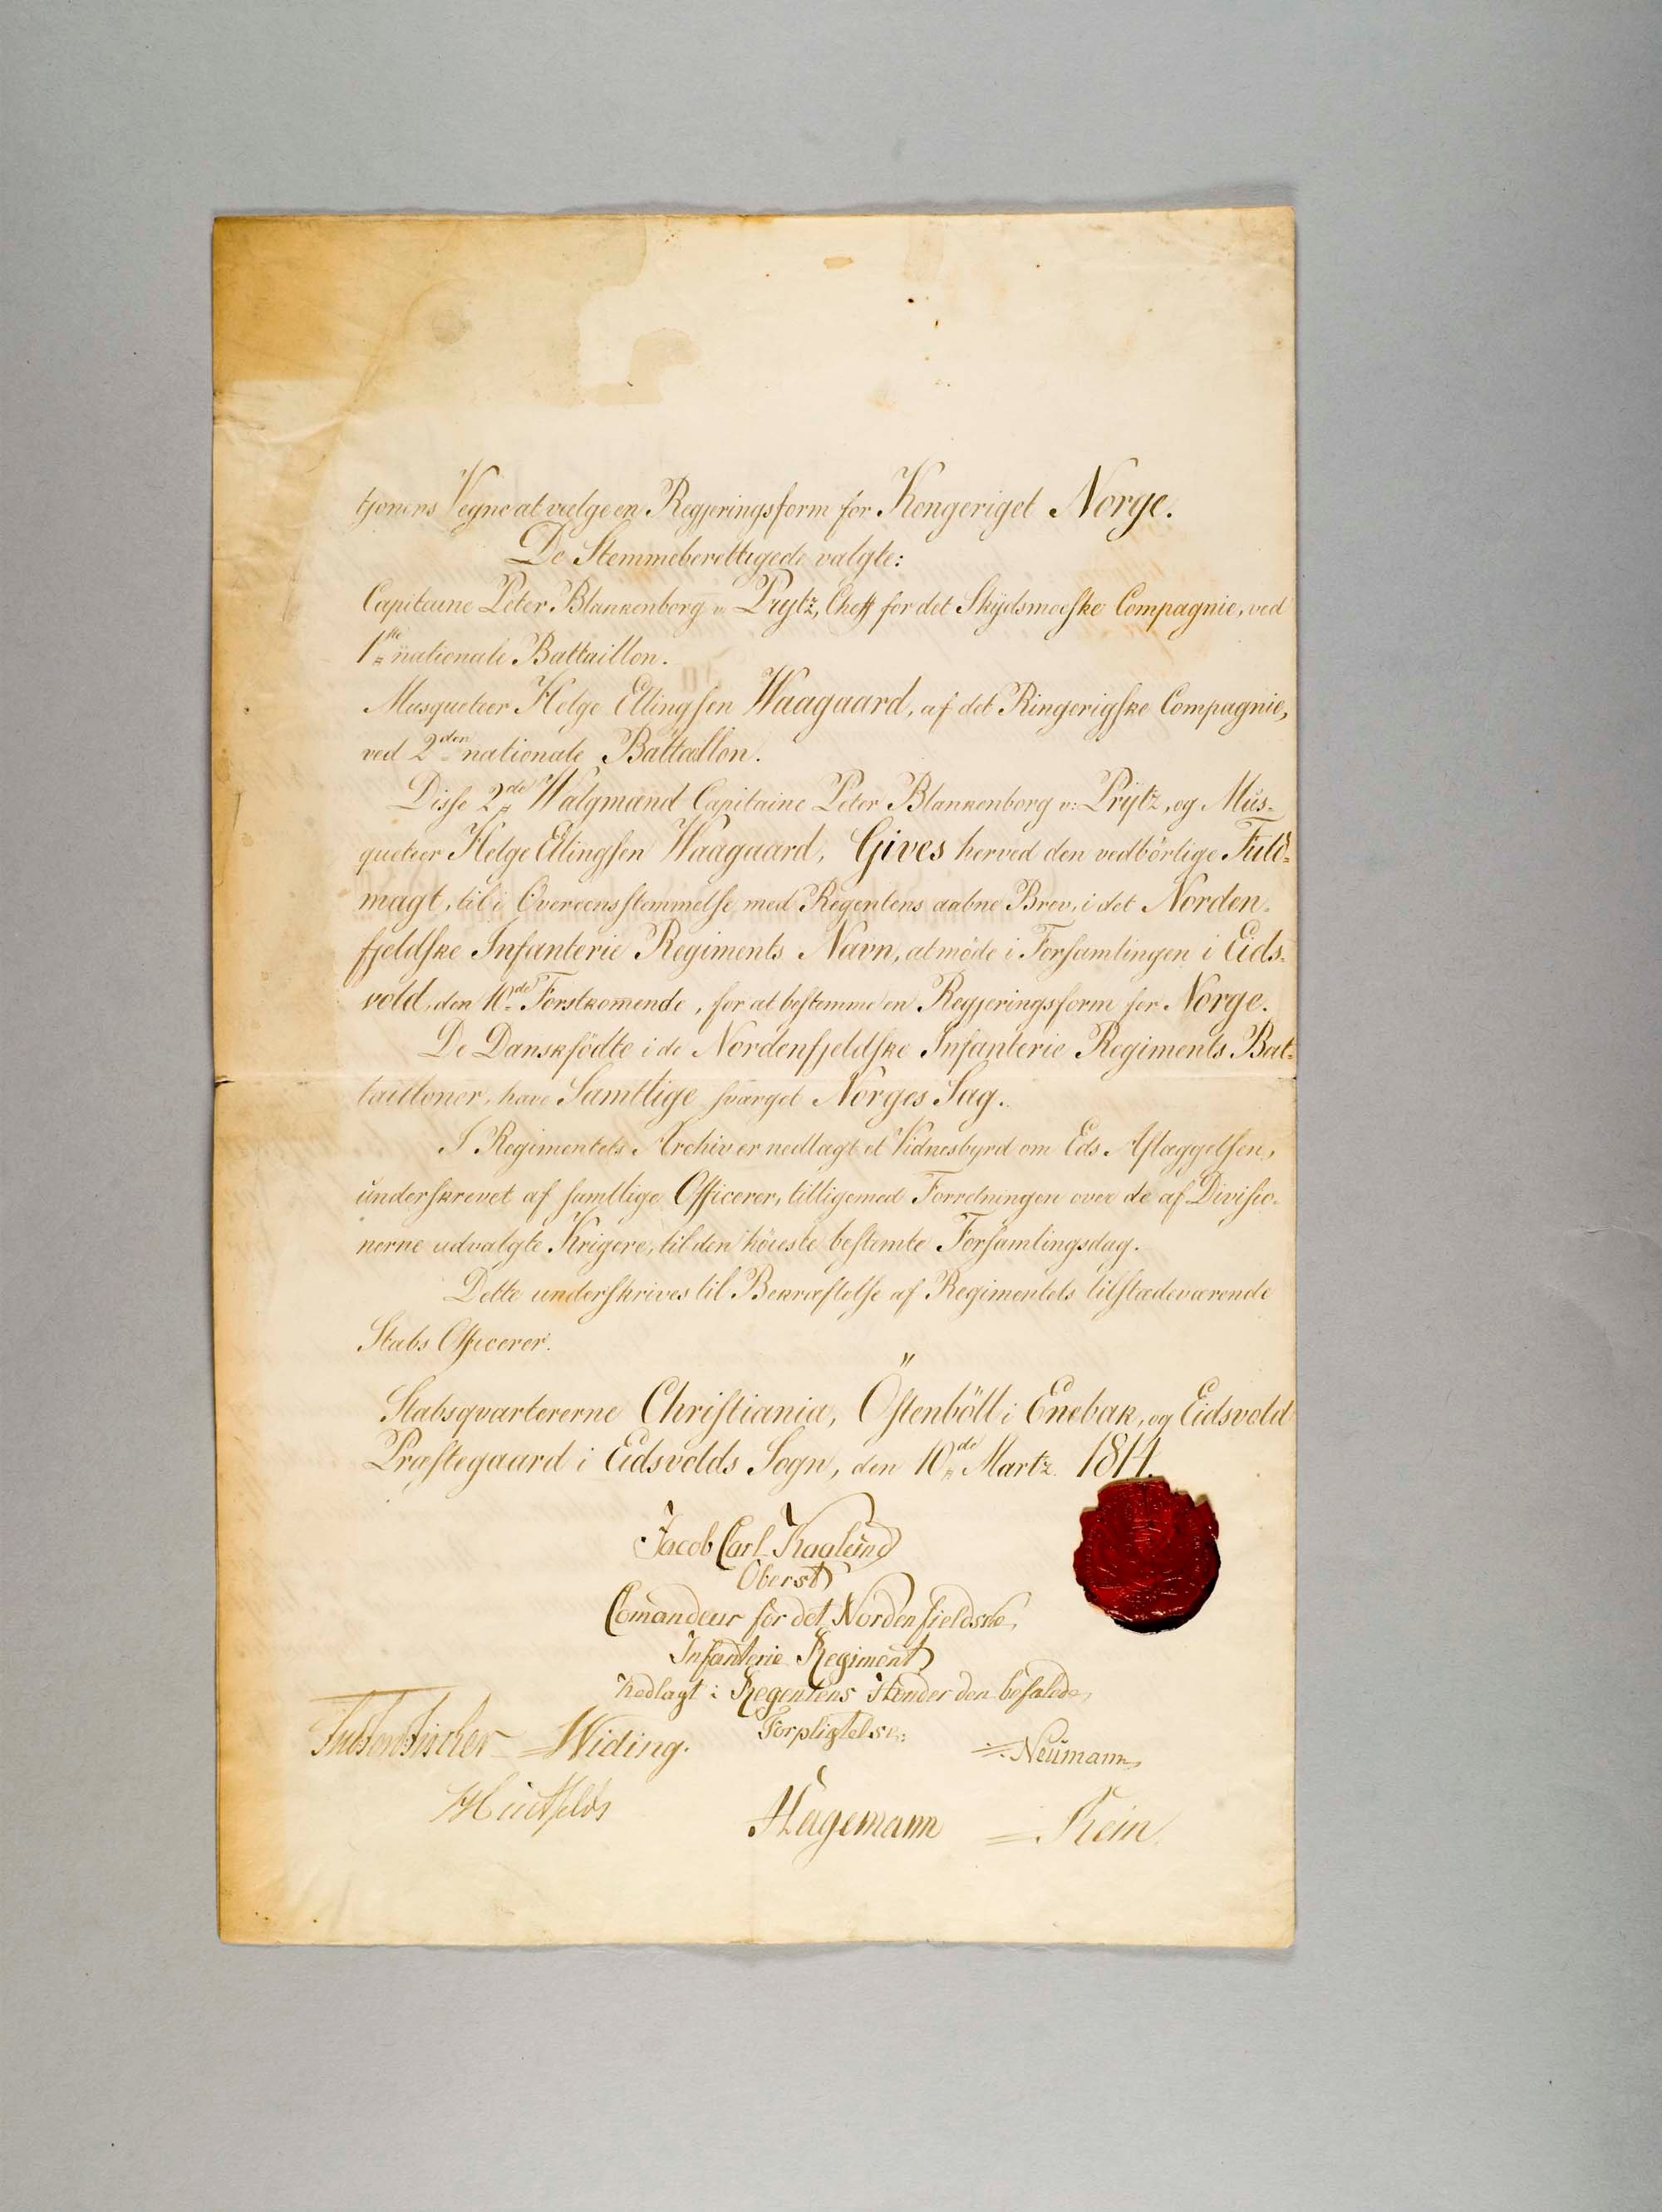 tjonens Vegne at vælge en Regjeringsform for Kongeriget Norge.
De Stemmeberettigede valgte:
Capitaine Peter Blankenborg v. Prytz, Cheff for det Skijdsmoeske Compagnie, ved
1ste nationale Battaillon.
Musqueteer Helge Ellingsen Waagaard, af det Ringerigske Compagnie,
ved 2den nationale Battaillon.
Disse 2de Walgmænd Capitaine Peter Blankenborg v: Prijtz, og Mus=
queteer Helge Ellingsen Waagaard, Gives herved den vedbörlige Fuld=
magt, til i Overeensstemmelse med Regentens aabne Brev, i det Norden=
fjeldske Infanterie Regiments Navn, at möde i Forsamlingen i Eids=
vold, den 10de Förstkomende, for at bestemme en Regjeringsform for Norge.
De Danskfödte i de Nordenfjeldske Infanterie Regiments Bat=
tailloner, have Samtlige sværget Norges Sag.
I Regimentets Archiv er nedlagt et Vidnesbyrd om Eds Aflæggelsen,
underskrevet af samtlige Officerer, tilligemed Forretningen over de af Divisio=
nerne udvalgte Krigere, til den höieste bestemte Forsamlingsdag.
Dette underskrives til Bekræftelse af Regimentets tilstædeværende
Stabs Officerer.
Stabsqvartererne Christiania, Östenböll i Enebak, og Eidsvold
Præstegaard i Eidsvolds Sogn, den 10de Martz 1814.
Jacob Carl
Oberst
Comandeur for det Nordenfieldske
Infanterie Regiment
nedlagt i Regentens Hænder den befalede
Forpligtelse:
Fischer Widing. Neumann
Huitfeldt Hagemann Rein.